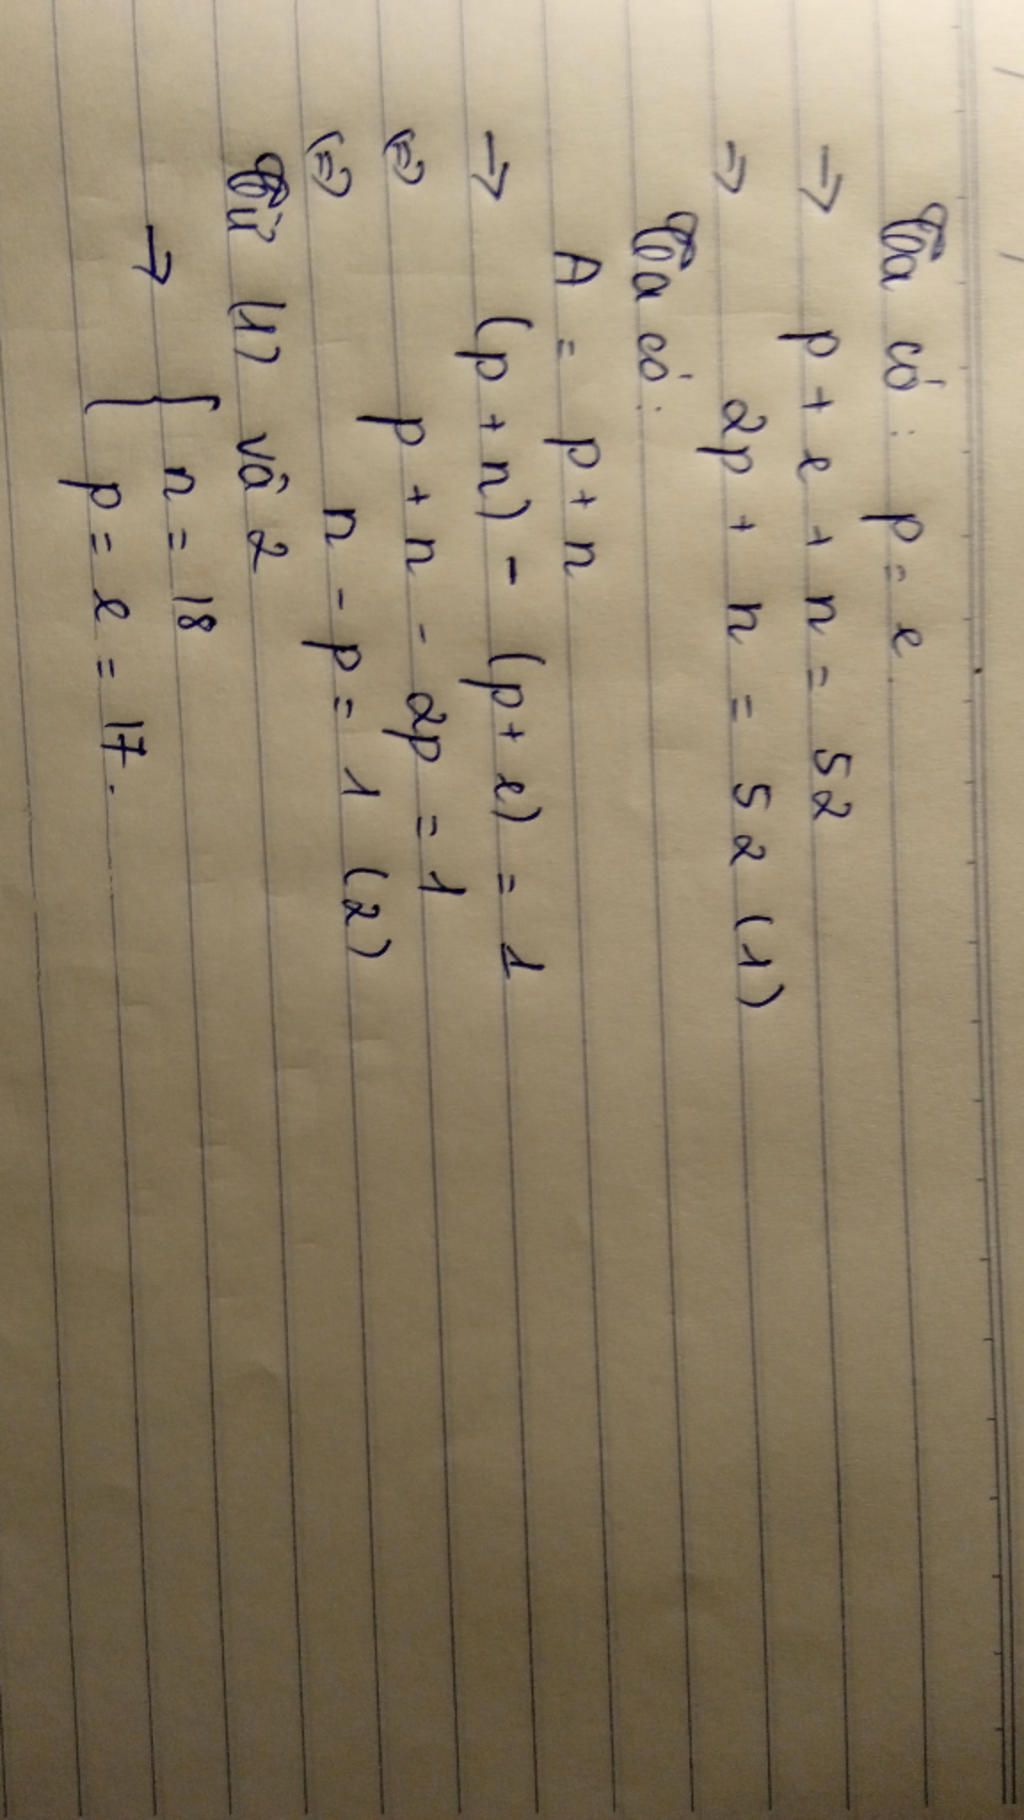 Ta có: p = e
→ p + e + n = 52
=> 2p + n = 52 (1)
Ta có:
A = p + n
→ (p + n) - (p + e) = 1
(=) p + n - 2p = 1
(=) n - p = 1 (2)
Từ (1) và 2
→ { n = 18
p = e = 17.